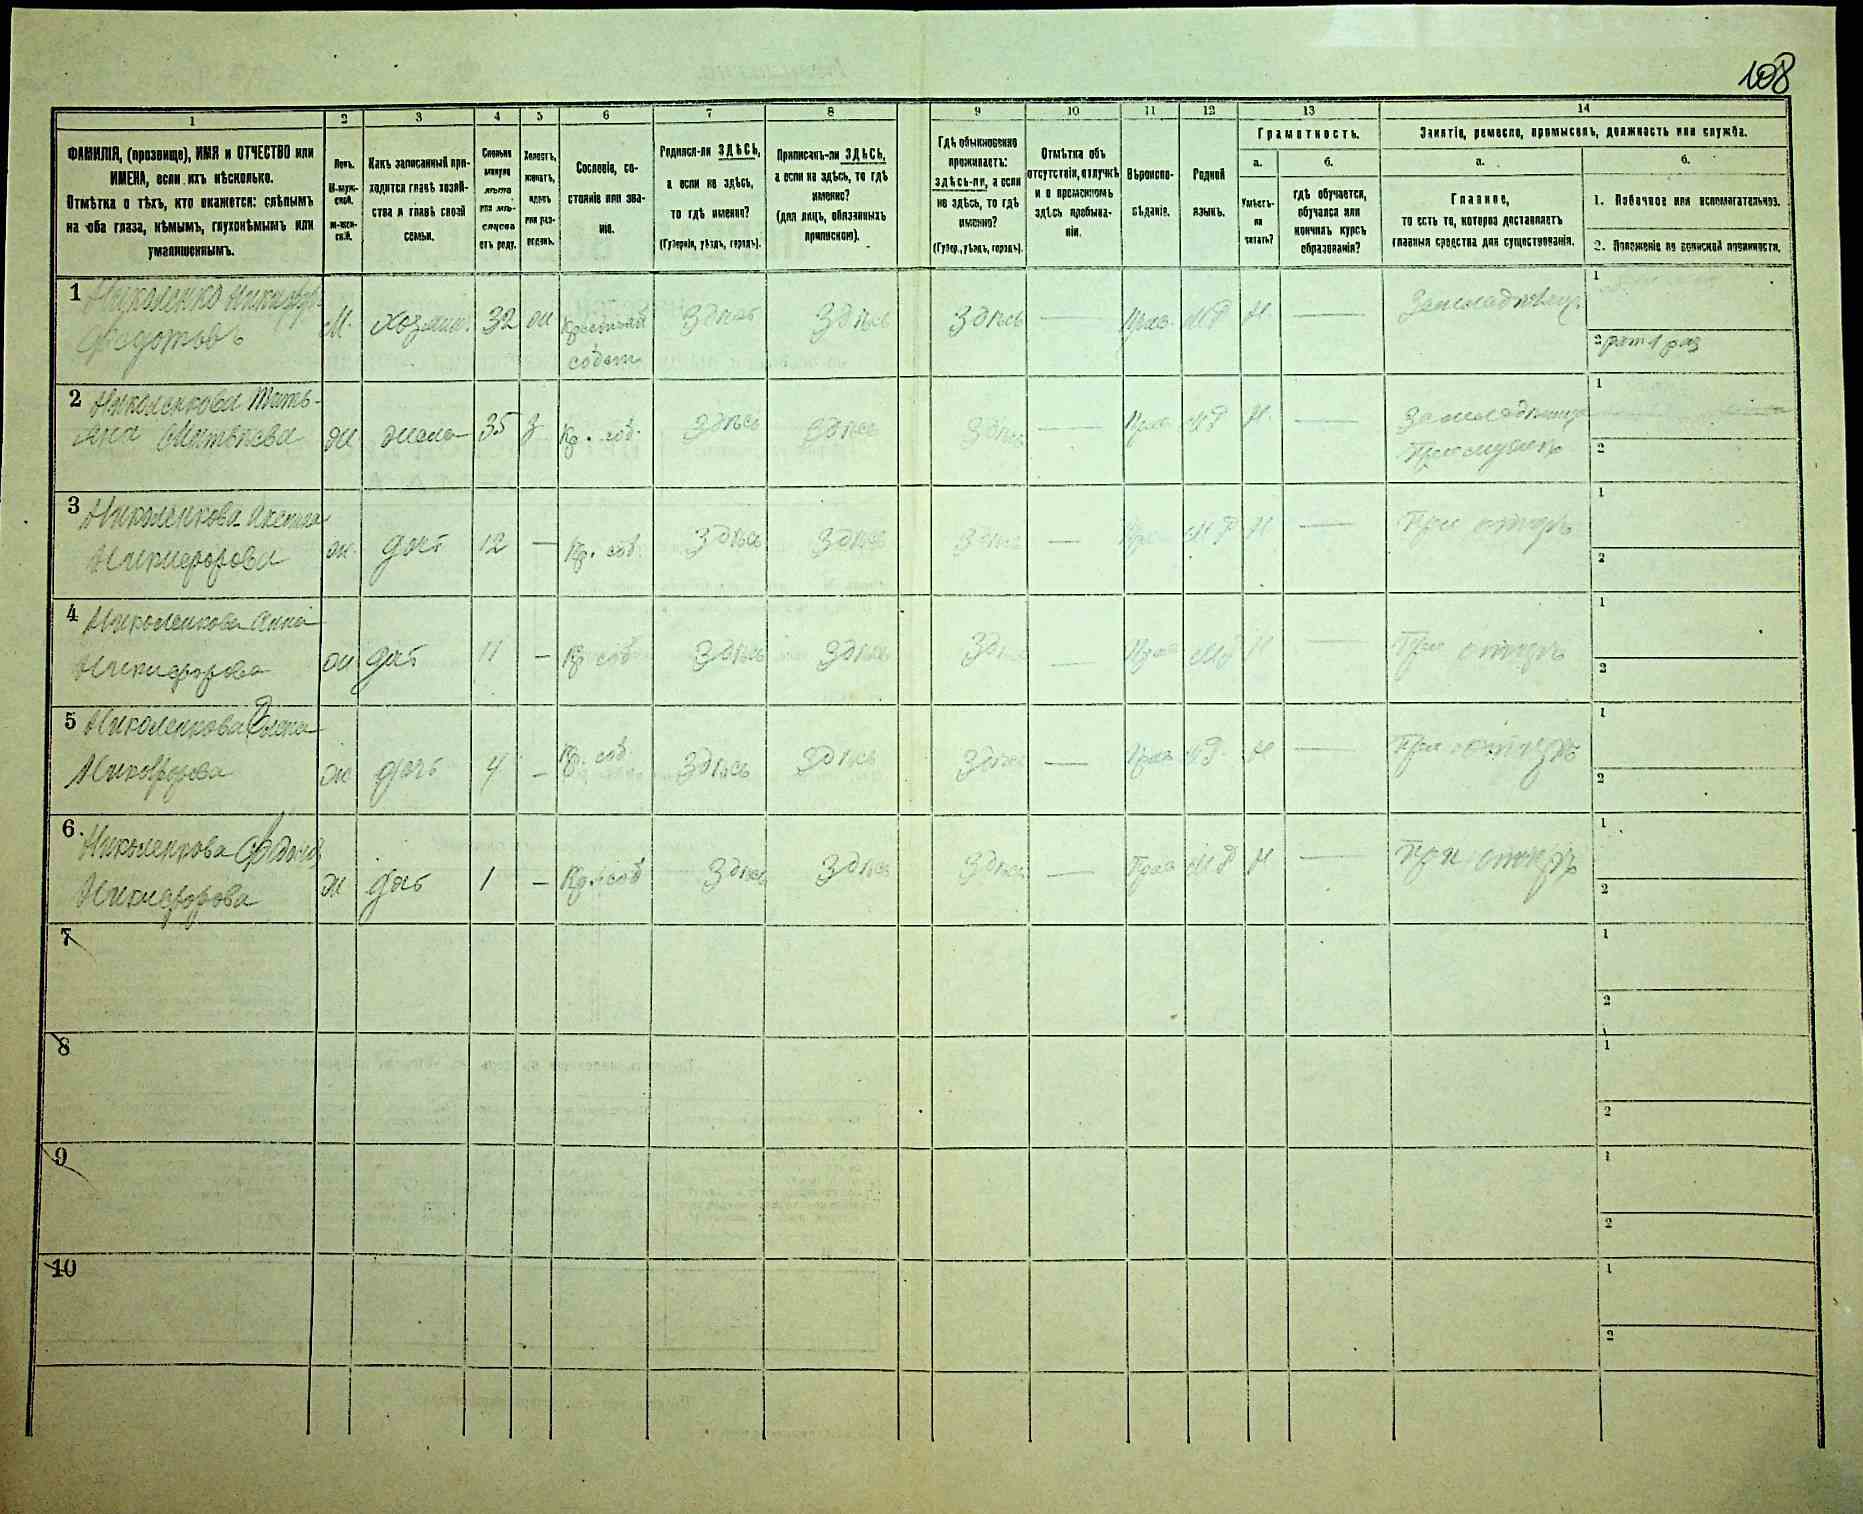 108
1 2 3 4 5 6 7 8 9 10 11 12 13 14
ФАМИЛІЯ, (прозвище), ИМЯ и ОТЧЕСТВО или
ИМЕНА, если ихъ нѣсколько.
Отмѣтка о тѣхъ, кто окажется: слѣпымъ
на оба глаза, нѣмымъ, глухонѣмымъ или
умалишеннымъ.
Полъ.
М-муж-
ской.
ж-жен-
скій.
Какъ записанный при-
ходится главѣ хозяй-
ства и главѣ своей
семьи.
Сколько
минуло
лѣтъ
или мѣ-
сяцевъ
отъ роду.
Холостъ,
женатъ,
вдовъ
или раз-
веденъ.
Сословіе, со-
стояніе или зва-
ніе.
Родился-ли ЗДѢСЬ,
а если не здѣсь,
то гдѣ именно?
(Губернія, уѣздъ, городъ).
Приписанъ-ли ЗДѢСЬ,
а если не здѣсь, то гдѣ
именно?
(для лицъ, обязанныхъ
припискою).
Гдѣ обыкновенно
проживаетъ:
здѣсь-ли, а если
не здѣсь, то гдѣ
именно?
(Губер., уѣздъ, городъ).
Отмѣтка объ
отсутствіи, отлучкѣ
и о временномъ
здѣсь пребыва-
ніи.
Вѣроиспо-
вѣданіе.
Родной
языкъ.
Грамотность.
а. б.
Умѣетъ-
ли
читать?
гдѣ обучается,
обучался или
кончилъ курсъ
образованія?
Занятіе, ремесло, промыселъ, должность или служба.
а. б.
Главное,
то есть то, которое доставляетъ
главныя средства для существованія.
1. Побочное или вспомогательное.
2. Положеніе по воинской повинности.
1 Николенко Никифоръ
Федотовъ
М. хозяинъ 32 ж
собст
Здѣсь Здѣсь Здѣсь — Прав. МР Н —
Земледѣлецъ
1
2 рат 1 раз
2 Николенкова Тать-
яна Матвѣева
ж жена 35 з Кр. соб. Здѣсь Здѣсь Здѣсь — Прав МР Н —
1
2
3 Николенкова
Никифорова
ж. доч 12 — Кр. соб. Здѣсь Здѣсь Здѣсь — Прав МР Н — При отцѣ
1
2
4 Николенкова Анна
Никифорова
ж доч 11 — Кр соб Здѣсь Здѣсь Здѣсь — Прав МР Н — При отцѣ
1
2
5 Николенкова Елена
Никифорова
ж доч 4 — Кр. соб. Здѣсь Здѣсь Здѣсь — Прав МР Н — При отцѣ
1
2
6. Николенкова
Никифорова
ж доч 1 — Кр. соб Здѣсь Здѣсь Здѣсь — Прав МР Н — При отцѣ
1
2
7
1
2
8
1
2
9
1
2
10
1
2